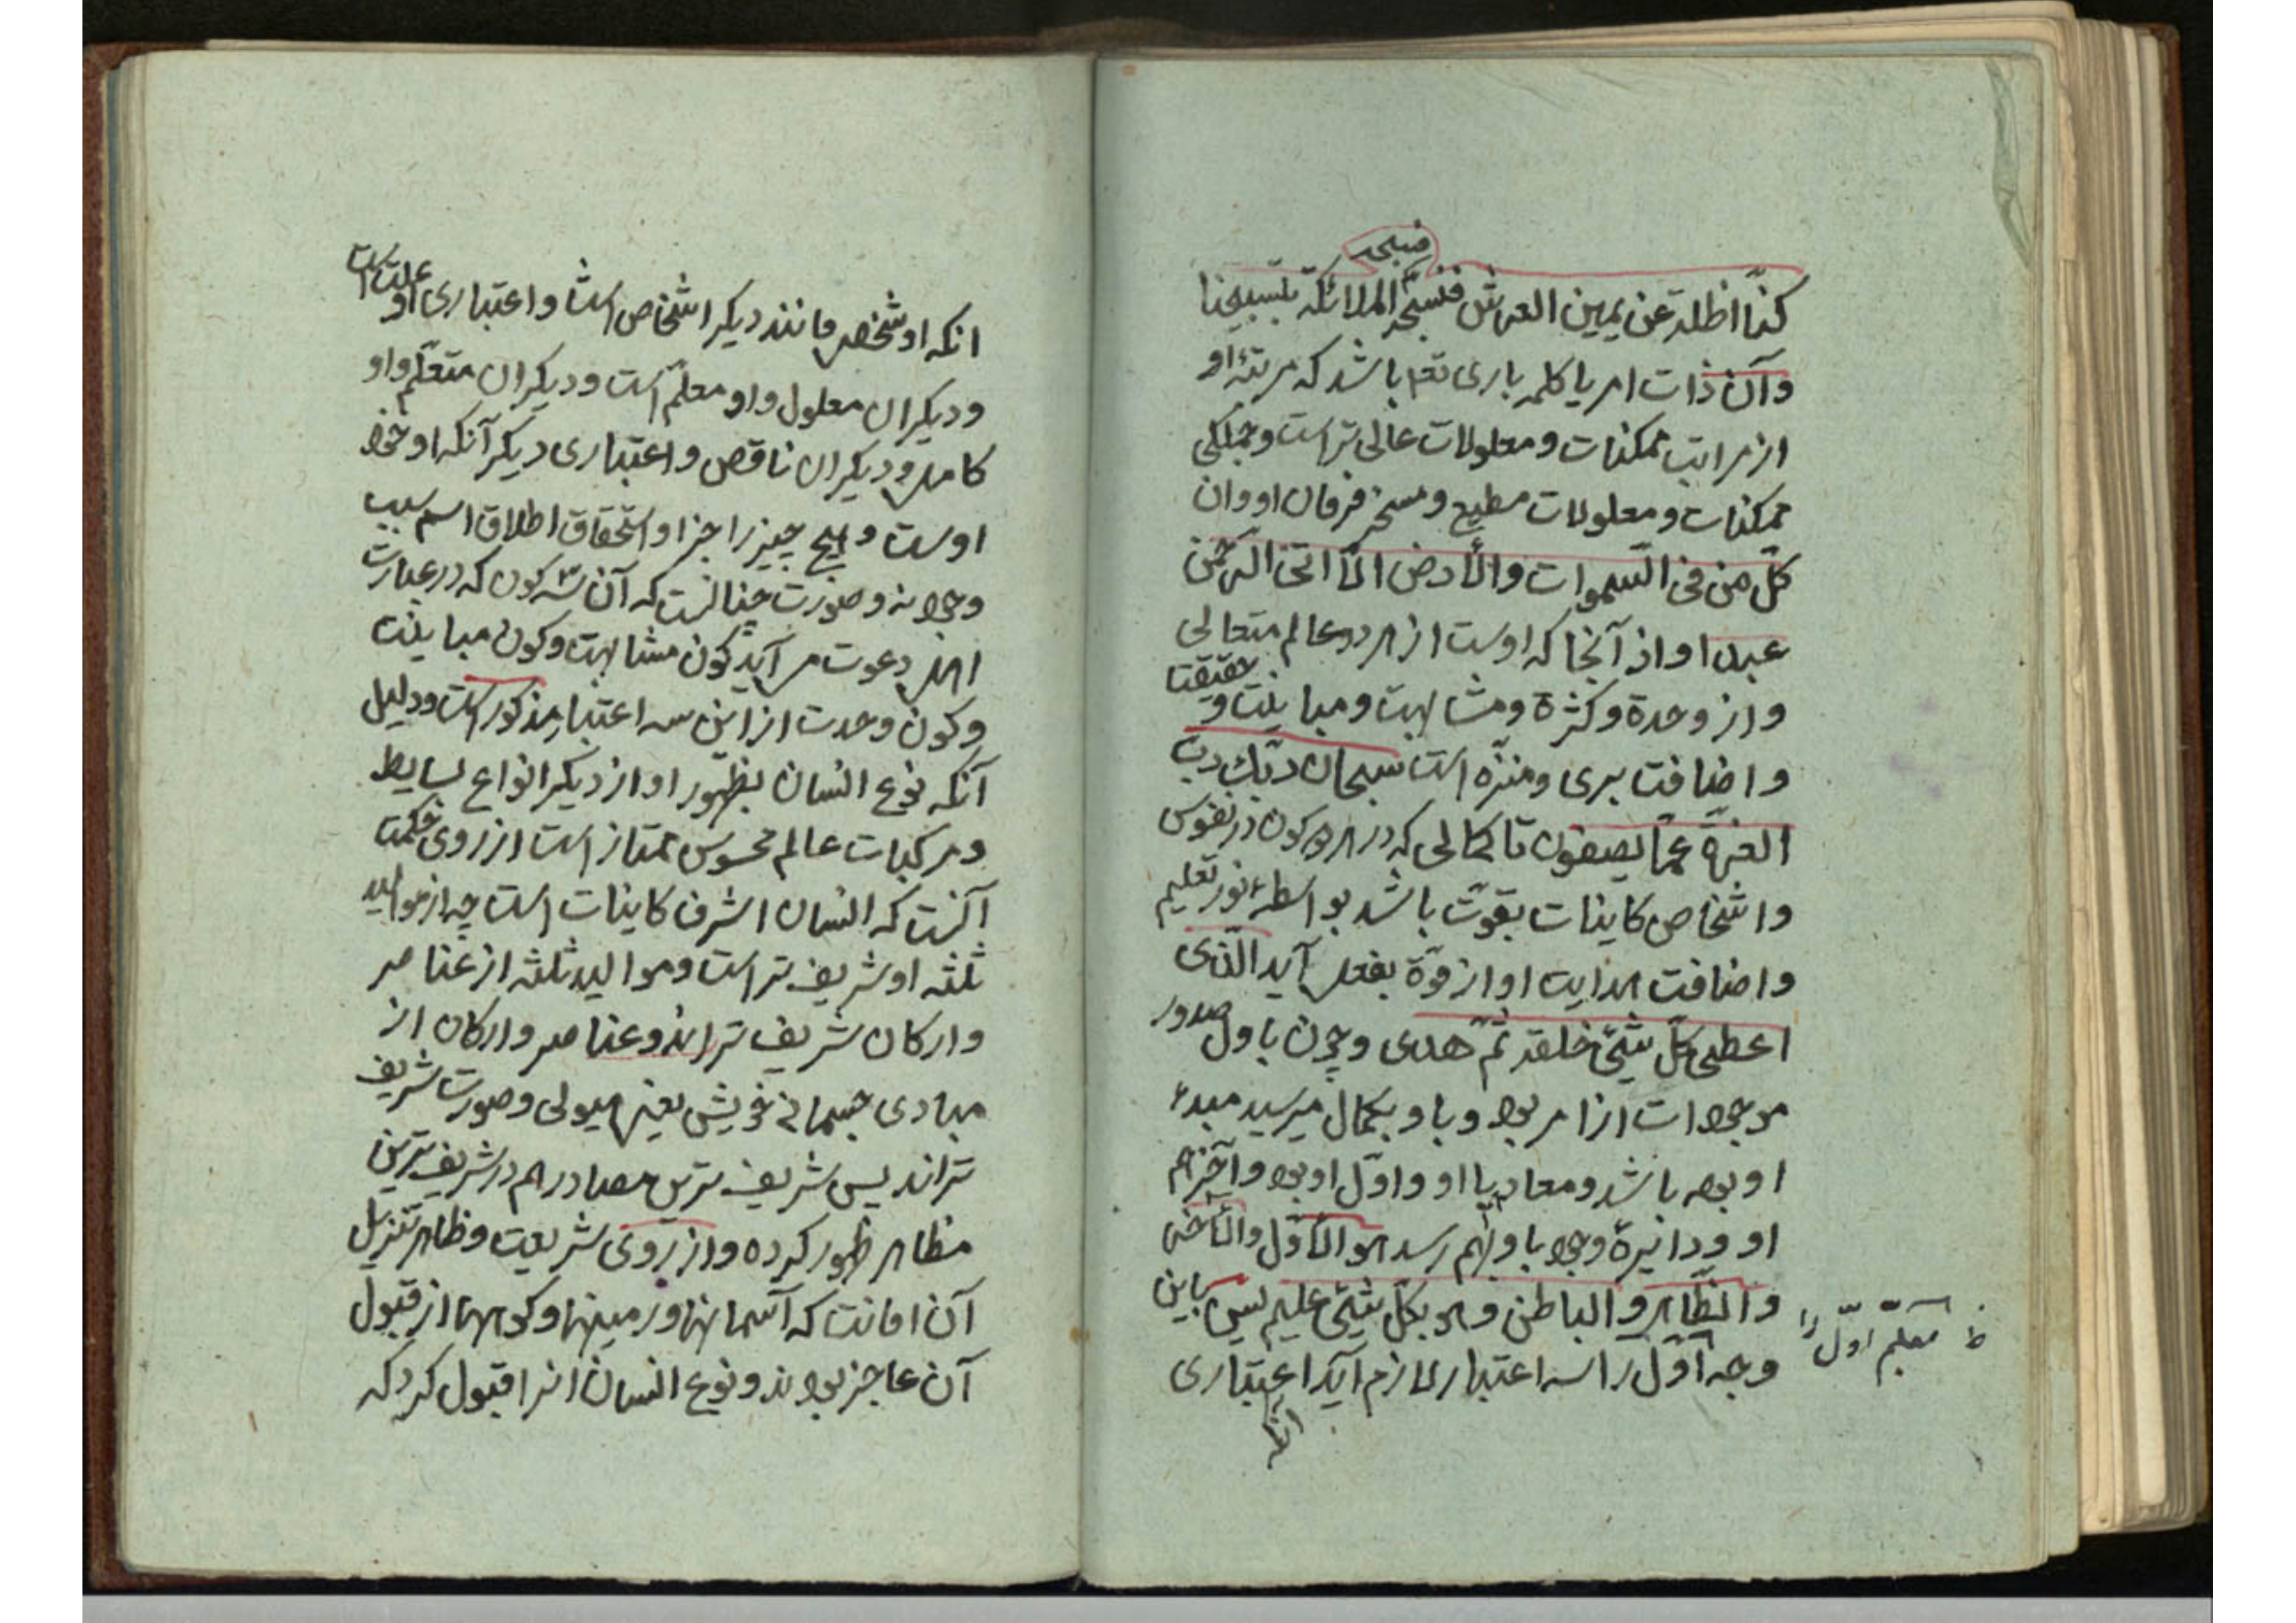 فسبحت
كنّا اظلة عن يمين العرش فنسبّح الملائكة بتسبيحنا
وآن ذات امر يا كلمه باری تعم باشد كه مرتبۀ او
از مراتب ممكنات و معلولات عالی تر است و جملكی
ممكنات و معلولات مطيع و مسخر فرمان او وان
كلّ من فی السّموات والأرض الّا اتی الرّحمن
عبدا و از آنجا كه اوست از هر دو عالم متعالی
و از وحدة و كثرة و مشابهت و مباينت و حقيقت
و اضافت بری و منزّه است سبحان ربّك ربّ
العزة عمّا يصفون تا كمالی كه در هر دو كون در نفوس
و اشخاص كاينات بقوّت باشد بواسطۀ نور تعليم
و اضافت هدايت او از قوّة بفعل آيد الّذی
اعطی كلّ شیء خلقه ثمّ هدی و چون باول صدور
موجودات از امر بود و باو بكمال ميرسيد مبدء
او بوده باشد و معاد با او و اوّل او بود و آخر هم
او و دايرۀ وجود باو بهم رسد هو الأوّل والآخر
والظّاهر والباطن وهو بكلّ شیء عليم پس باين
وجه اوّل را سه اعتبار لازم آيد اعتباری
ظ معلّم اوّل را
آنكه
انكه او شخص مانند ديكر اشخاص است و اعتباری او علت است
و ديكران معلول و او معلّم است و ديكران متعلّم و او
كامل و ديكران ناقص و اعتباری ديكر آنكه او خود
اوست و هيچ چيز را جز او استحقاق اطلاق اسم سبب
وجود نه و صورت چنانست كه آن سه كون كه در عبارت
اهل دعوت می آيد كون مشابهت و كون مباينت
و كون وحدت از اين سه اعتبار مذكور است و دليل
آنكه نوع انسان بظهور او از ديكر انواع بسايط
و مركبات عالم محسوس ممتاز است از روی حكمت
آنست كه انسان اشرف كاينات است چه از مواليد
ثلثه او شريف تر است و مواليد ثلثه از عناصر
و اركان شريف تراند و عناصر و اركان از
مبادی جسمانی خويش يعنی هيولی و صورت شريف
تراند پس شريف ترين مصادر هم در شريف ترين
مظاهر ظهور كرده و از روی شريعت و ظاهر تنزيل
آن امانت كه آسمانها و زمينها و كوهها از قبول
آن عاجز بودند و نوع انسان انرا قبول كرد كه